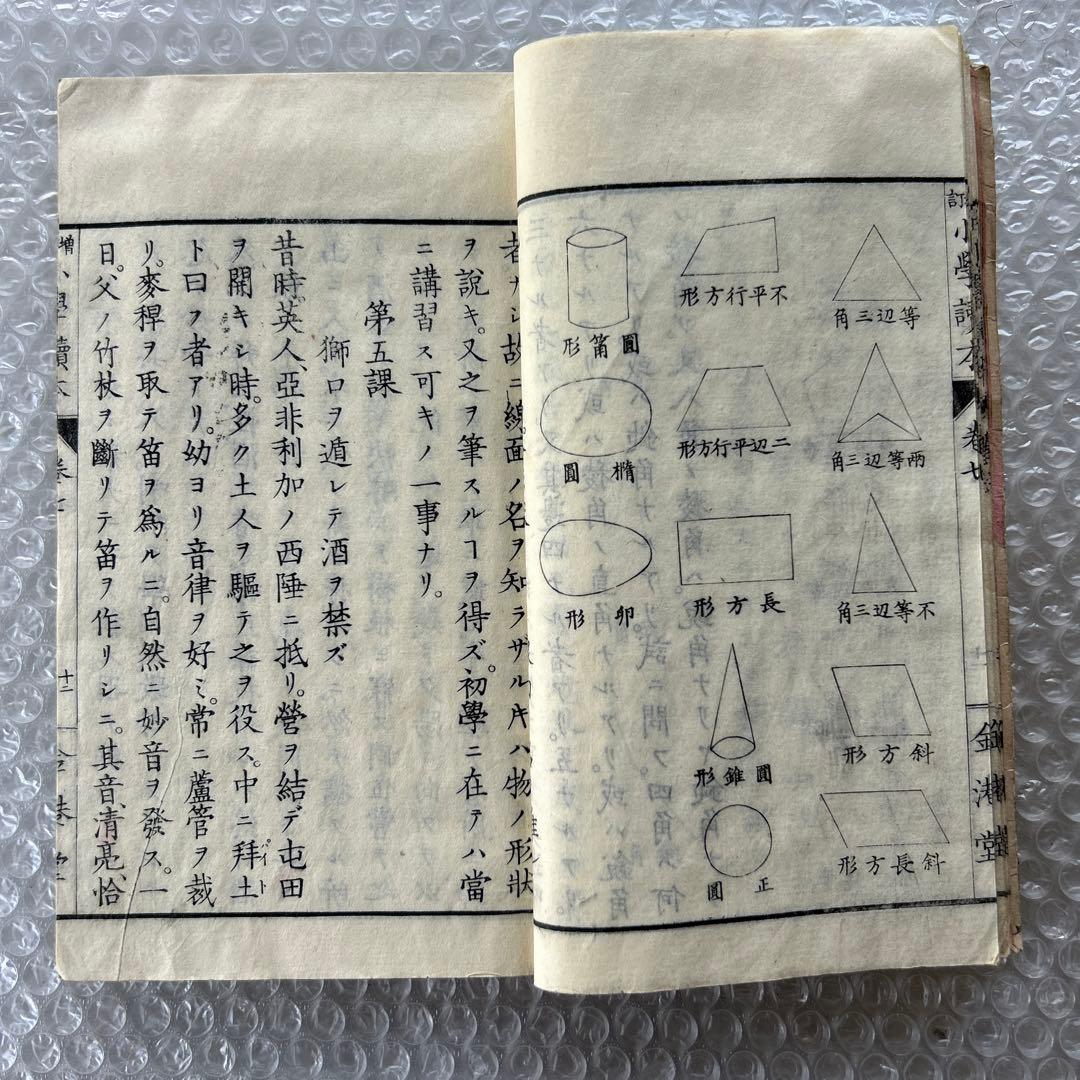 訂小學讀本
等辺三角
両等辺三角
不等辺三角
斜方形
斜長方形
不平行方形
二辺平行方形
長方形
圓錐形
正圓
圓筩形
楕圓
卵形
者ナシ故ニ線面ノ名ヲ知ラザルトキハ物ノ形狀
ヲ說キ。又之ヲ筆スルヿヲ得ズ。初學ニ在テハ當
ニ講習ス可キノ一事ナリ。
第五課
獅口ヲ遁レテ酒ヲ禁ズ
昔時英人、亞非利加ノ西陲ニ抵リ。營ヲ結デ屯田
ヲ開キシ時。多ク土人ヲ驅テ之ヲ役ス。中ニ拜土
パイト
ト曰フ者アリ。幼ヨリ音律ヲ好ミ。常ニ蘆管ヲ裁
リ。麥稈ヲ取テ笛ヲ爲ルニ。自然ニ妙音ヲ發ス。一
日。父ノ竹杖ヲ斷リテ笛ヲ作リシニ。其音、清亮、恰
增小學讀本 卷七 十二